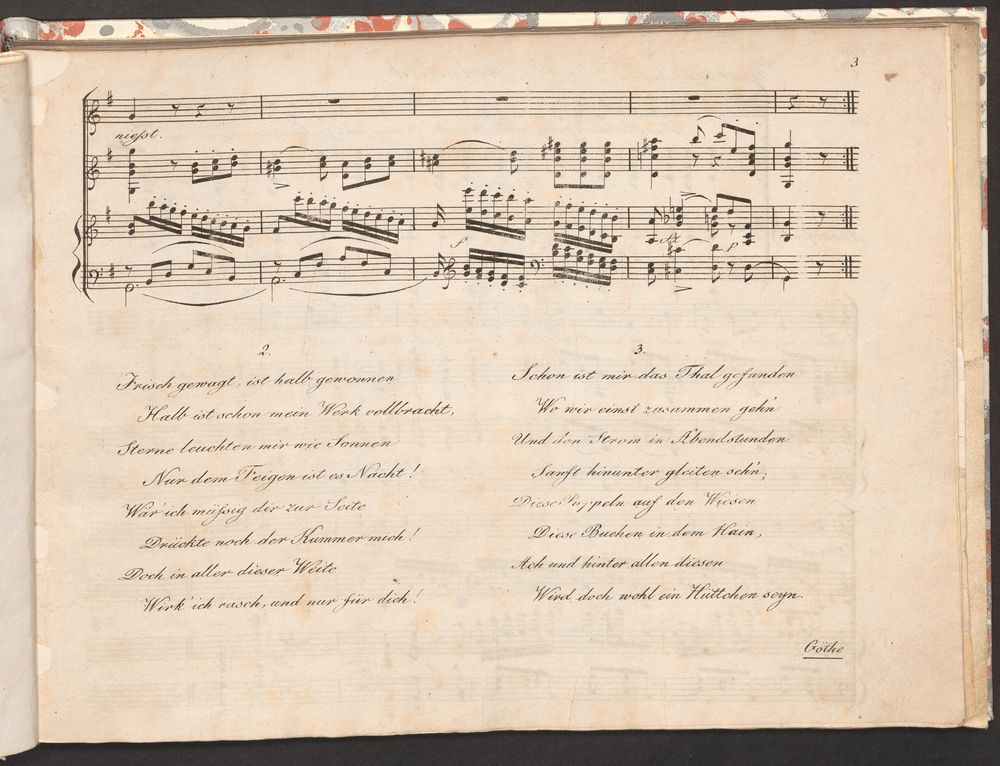 3
nießt.
f
p
2.
Frisch gewagt, ist halb gewonnen
Halb ist schon mein Werk vollbracht,
Sterne leuchten mir wie Sonnen
Nur dem Feigen ist es Nacht!
Wär' ich müßsig dir zur Seite
Drückte noch der Kummer mich!
Doch in aller dieser Weite
Wirk' ich rasch, und nur für dich!
3.
Schon ist mir das Thal gefunden
Wo wir einst zusammen gehn
Und den Strom in Abendstunden
Sanft hinunter gleiten sehn;
Diese Pappeln auf den Wiesen
Diese Buchen in dem Hain,
Ach und hinter allen diesen
Wird doch wohl ein Hüttchen seyn.
Göthe